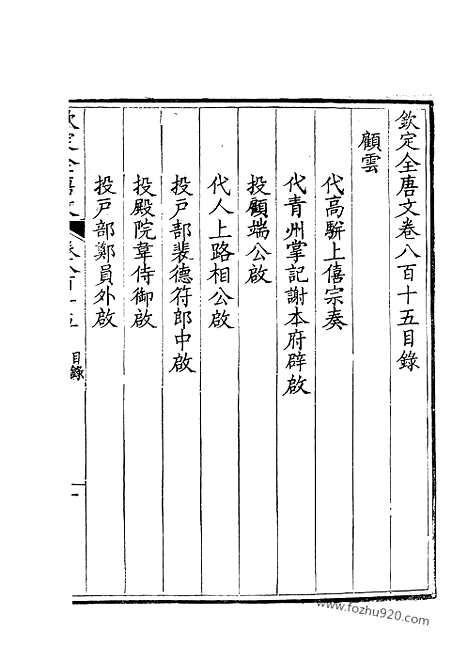 欽定全唐文卷八百十五目錄
顧雲
代高駢上僖宗奏
代青州掌記謝本府辟啟
投顧端公啟
代人上路相公啟
投戸部裴德符郎中啟
投殿院韋侍御啟
投戸部鄭員外啟
欽定全唐文 卷八百十五 目錄 一
www.fozhu920.com